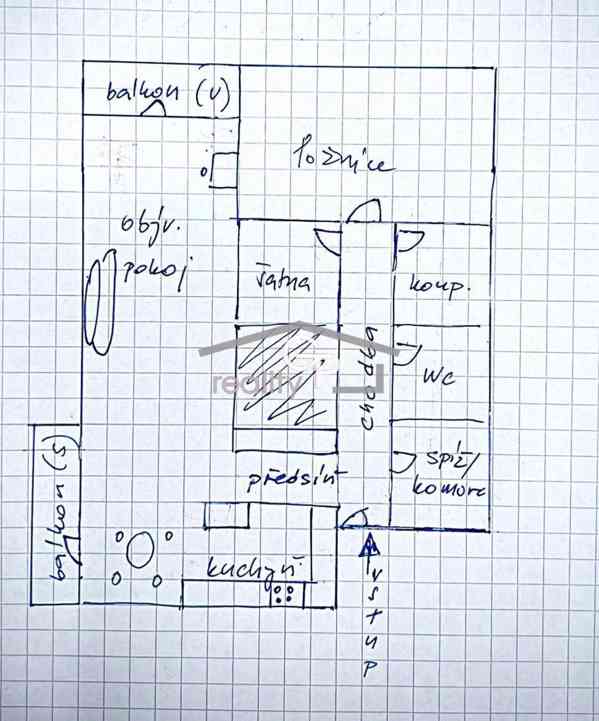 balkon (V)
ložnice
obýv.
pokoj
šatna
koup.
chodba
reality
WC
balkon (S)
předsíň
spíž/
komora
kuchyň
vstup